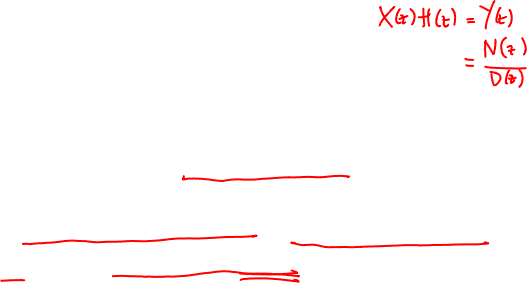 X(z)H(z) = Y(z)
= N(z)/D(z)